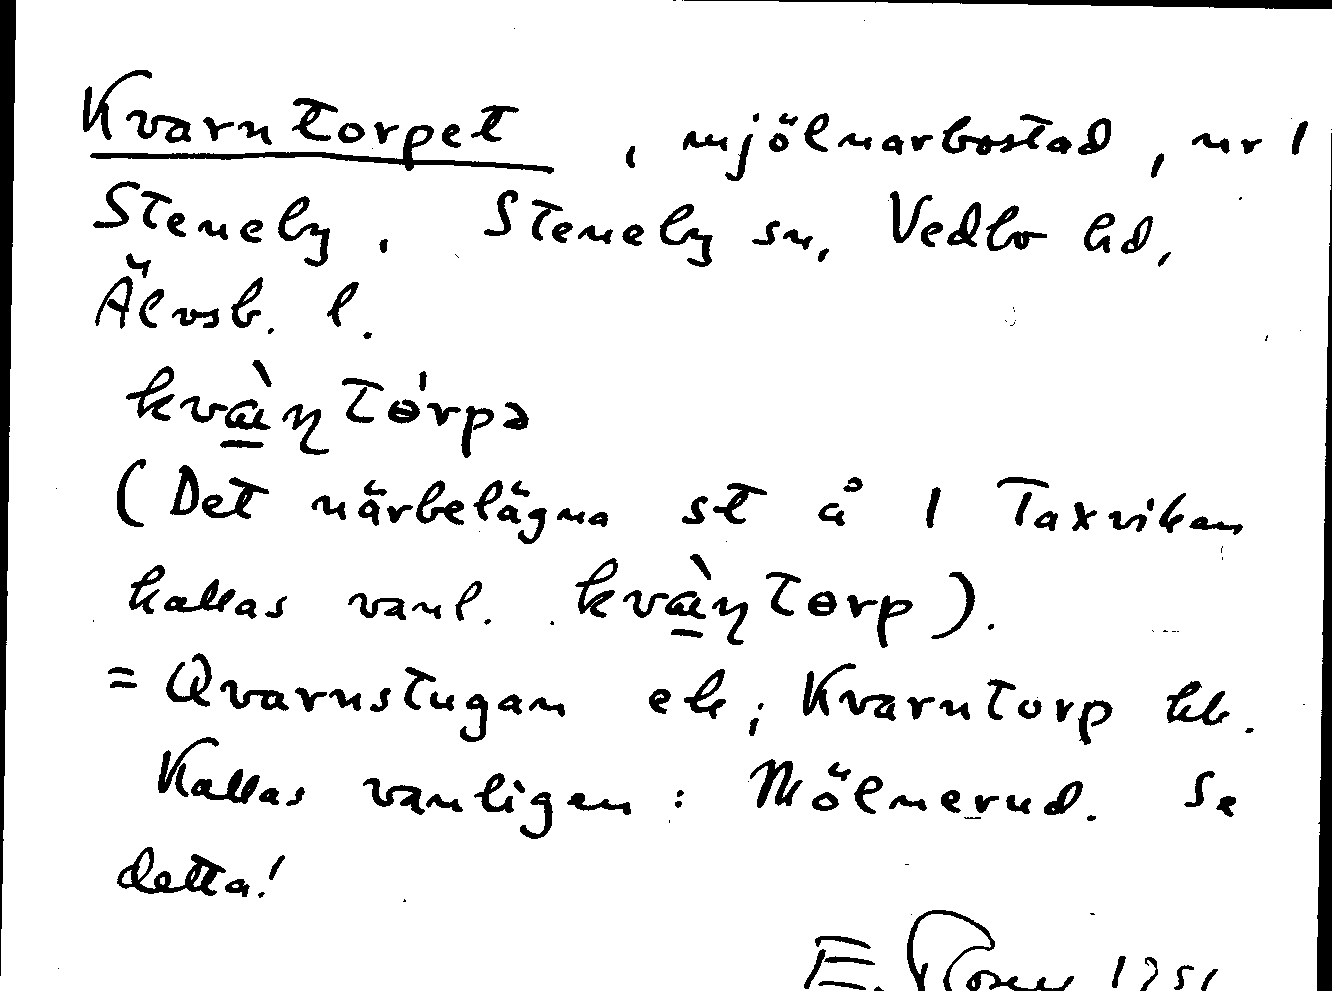 Kvarntorpet, mjölnarbostad, nr 1
Steneby, Steneby sn, Vedbo hd,
Älvsb. l.
kvàɳtɵ́rpə
(Det närbelägna st å 1 Taxviken
kallas vanl. kvàɳtɵrp).
= Qvarnstugan ek; Kvarntorp kb.
Kallas vanligen: Mölnerud. Se
detta!
E.